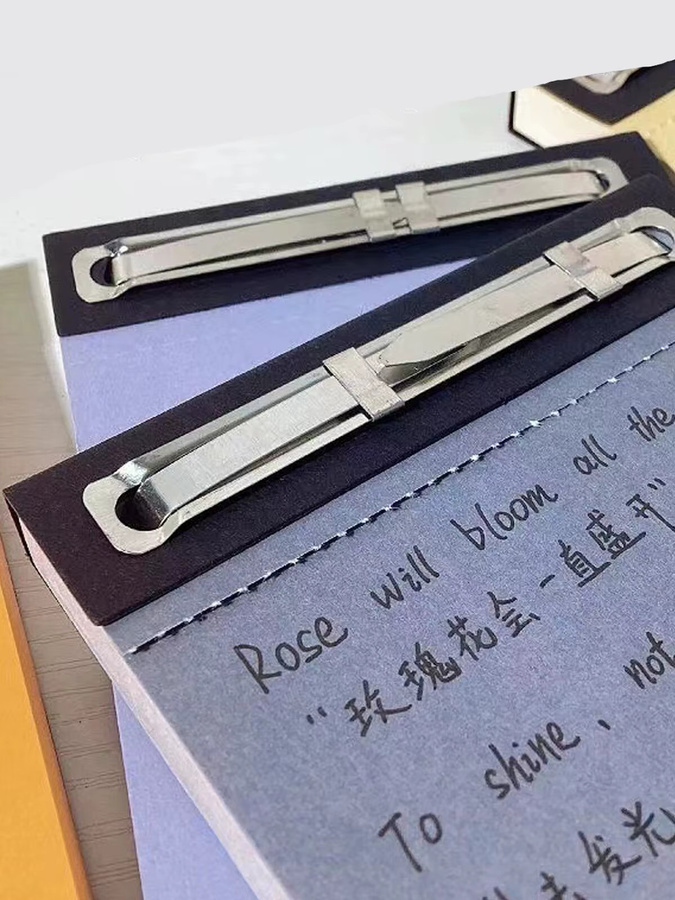 Rose will bloom all the
"玫瑰花会一直盛开"
To shine, not
去发光